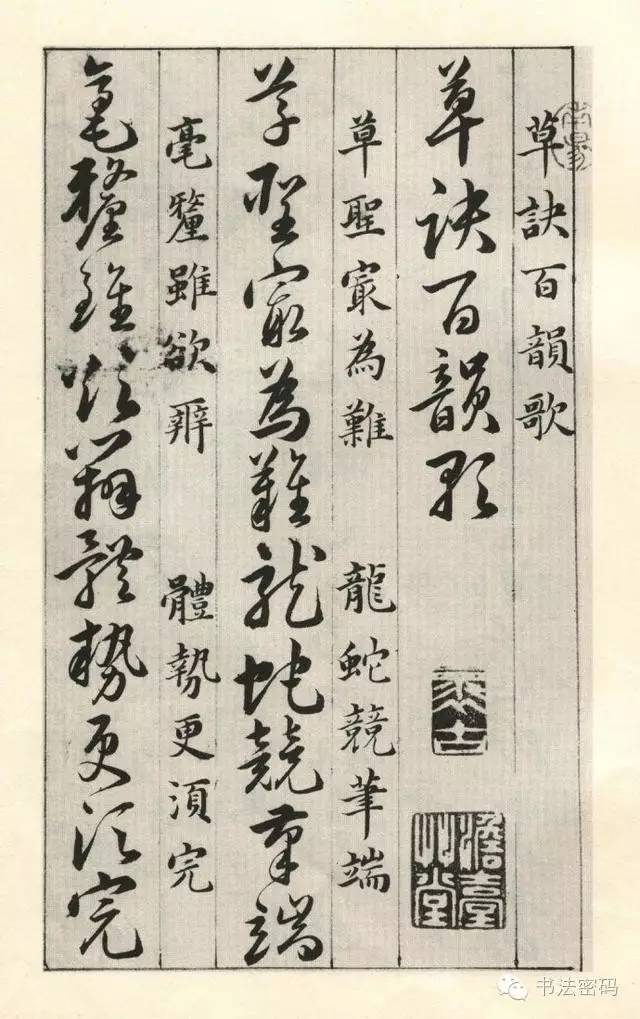 草訣百韻歌
草訣百韻歌
草聖㝡為難 龍蛇競筆端
草聖㝡為難龍蛇競筆端
毫釐雖欲辨 體勢更湏完
毫釐雖欲辨體勢更湏完
书法密码